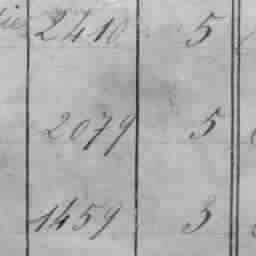 2410 5
2079 5
1459 3